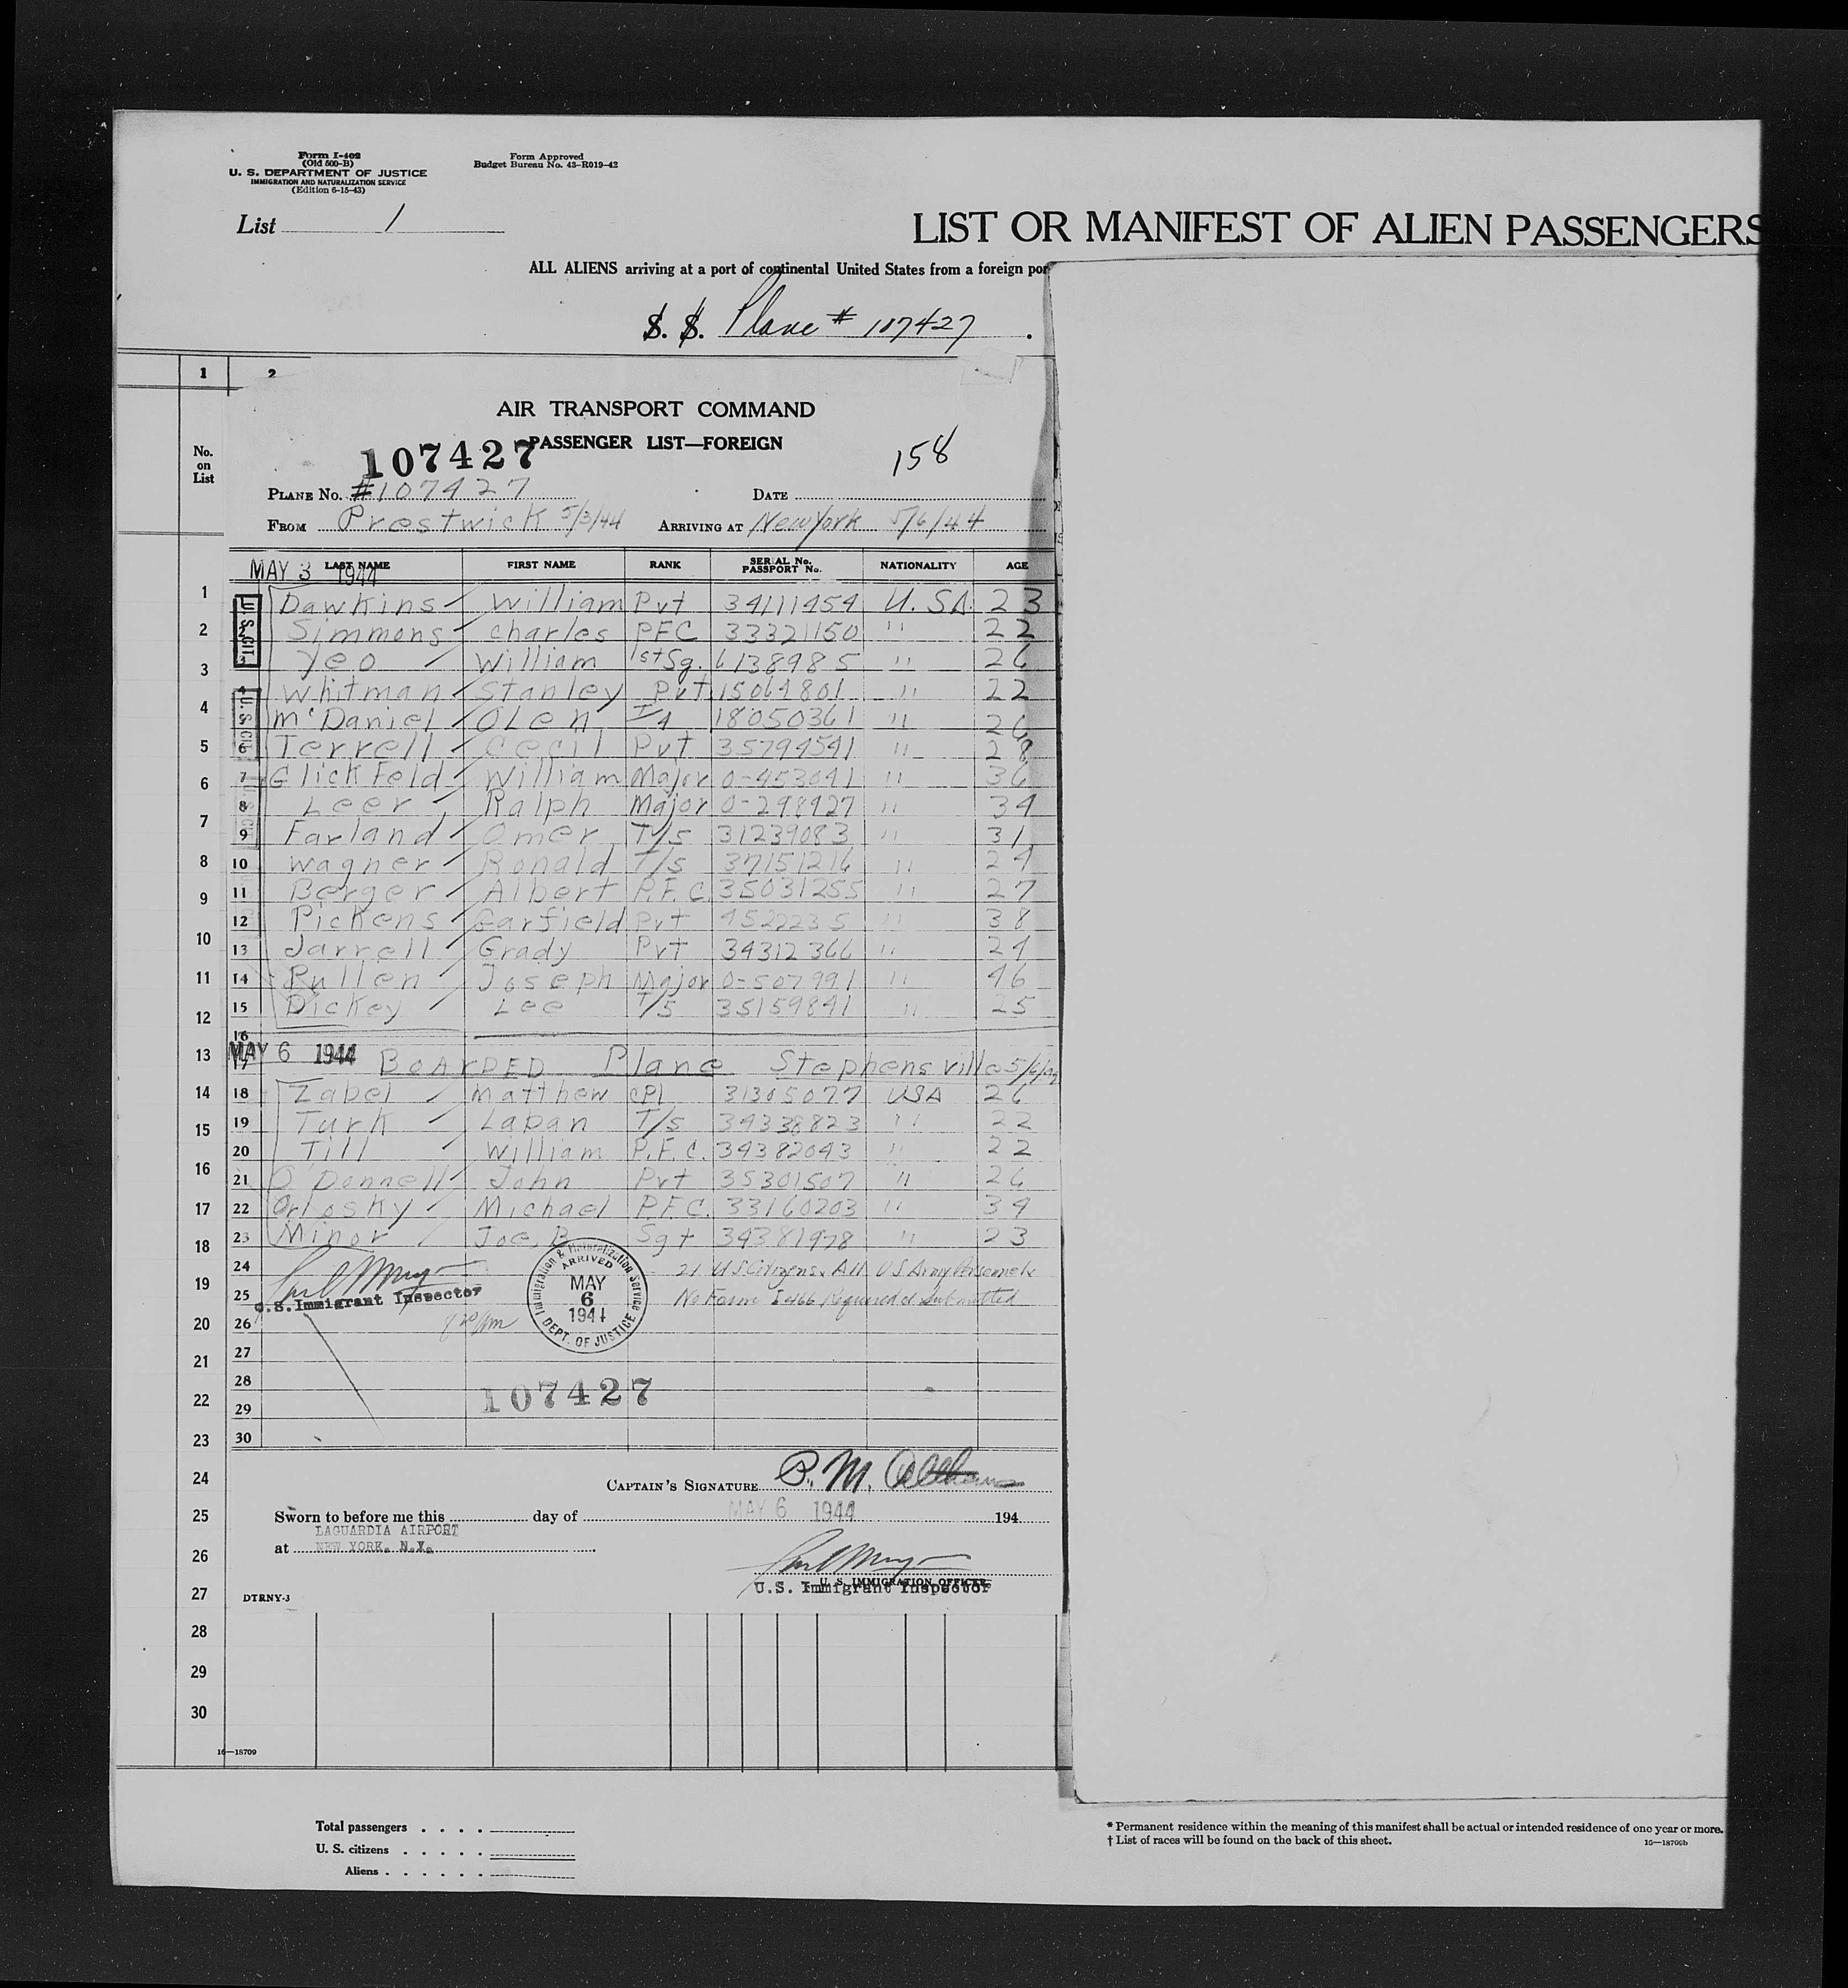 Form I-402
(Old 500-B)
U. S. DEPARTMENT OF JUSTICE
IMMIGRATION AND NATURALIZATION SERVICE
(Edition 6-15-43)
Form Approved
Budget Bureau No. 43-R019-42
List 1
LIST OR MANIFEST OF ALIEN PASSENGERS
ALL ALIENS arriving at a port of continental United States from a foreign por
S. S. Plane # 107427
1 2
No. on List
AIR TRANSPORT COMMAND
PASSENGER LIST—FOREIGN
107427
158
PLANE No. #107427 DATE
FROM Prestwick 5/3/44 ARRIVING AT New York 5/6/44
LAST NAME FIRST NAME RANK SERIAL No. PASSPORT No. NATIONALITY AGE
MAY 3 1944
U.S. CIT.
Dawkins William Pvt 34111454 U.SA. 23
Simmons Charles PFC 33321150 " 22
Yeo William 1stSg. 6138985 " 26
Whitman Stanley Pvt 15064801 " 22
McDaniel Olen T/4 18050361 " 26
Terrell Cecil Pvt 35794541 " 28
7 Glickfeld William Major 0-453041 " 36
8 Leer Ralph Major 0-298927 " 34
9 Farland Omer T/5 31239083 " 31
10 Wagner Ronald T/5 37151216 " 24
11 Berger Albert P.F.C. 35031255 " 27
12 Pickens Garfield Pvt 4522235 " 38
13 Jarrell Grady Pvt 34312366 " 24
14 Pullen Joseph Major 0-507991 " 46
15 Dickey Lee T/5 35159841 " 25
16
17 MAY 6 1944 BOARDED Plane Stephensville 5/6/44
18 Zabel Matthew cpl 31305077 USA 26
19 Turk Laban T/5 34338823 " 22
20 Till William P.F.C. 34382043 " 22
21 O'Donnell John Pvt 35301507 " 26
22 Orlosky Michael P.F.C. 33160203 " 34
23 Minor Joe B Sgt 34381978 " 23
24 21 U S Citizens, All U S Army Personnel
25 No Form I 466 Required or Submitted
U.S. Immigrant Inspector
26
Immigration & Naturalization Service
ARRIVED
MAY
6
1944
DEPT. OF JUSTICE
27
28
29
30
107427
CAPTAIN'S SIGNATURE P. M.
Sworn to before me this day of MAY 6 1944 194
LAGUARDIA AIRPORT
at NEW YORK, N.Y.
U. S. IMMIGRATION OFFICER
U.S. Immigrant Inspector
DTRNY-3
1
2
3
4
5
6
7
8
9
10
11
12
13
14
15
16
17
18
19
20
21
22
23
24
25
26
27
28
29
30
16—18709
Total passengers . . . .
U. S. citizens . . . . .
Aliens . . . . . .
* Permanent residence within the meaning of this manifest shall be actual or intended residence of one year or more.
† List of races will be found on the back of this sheet.
16—18709b